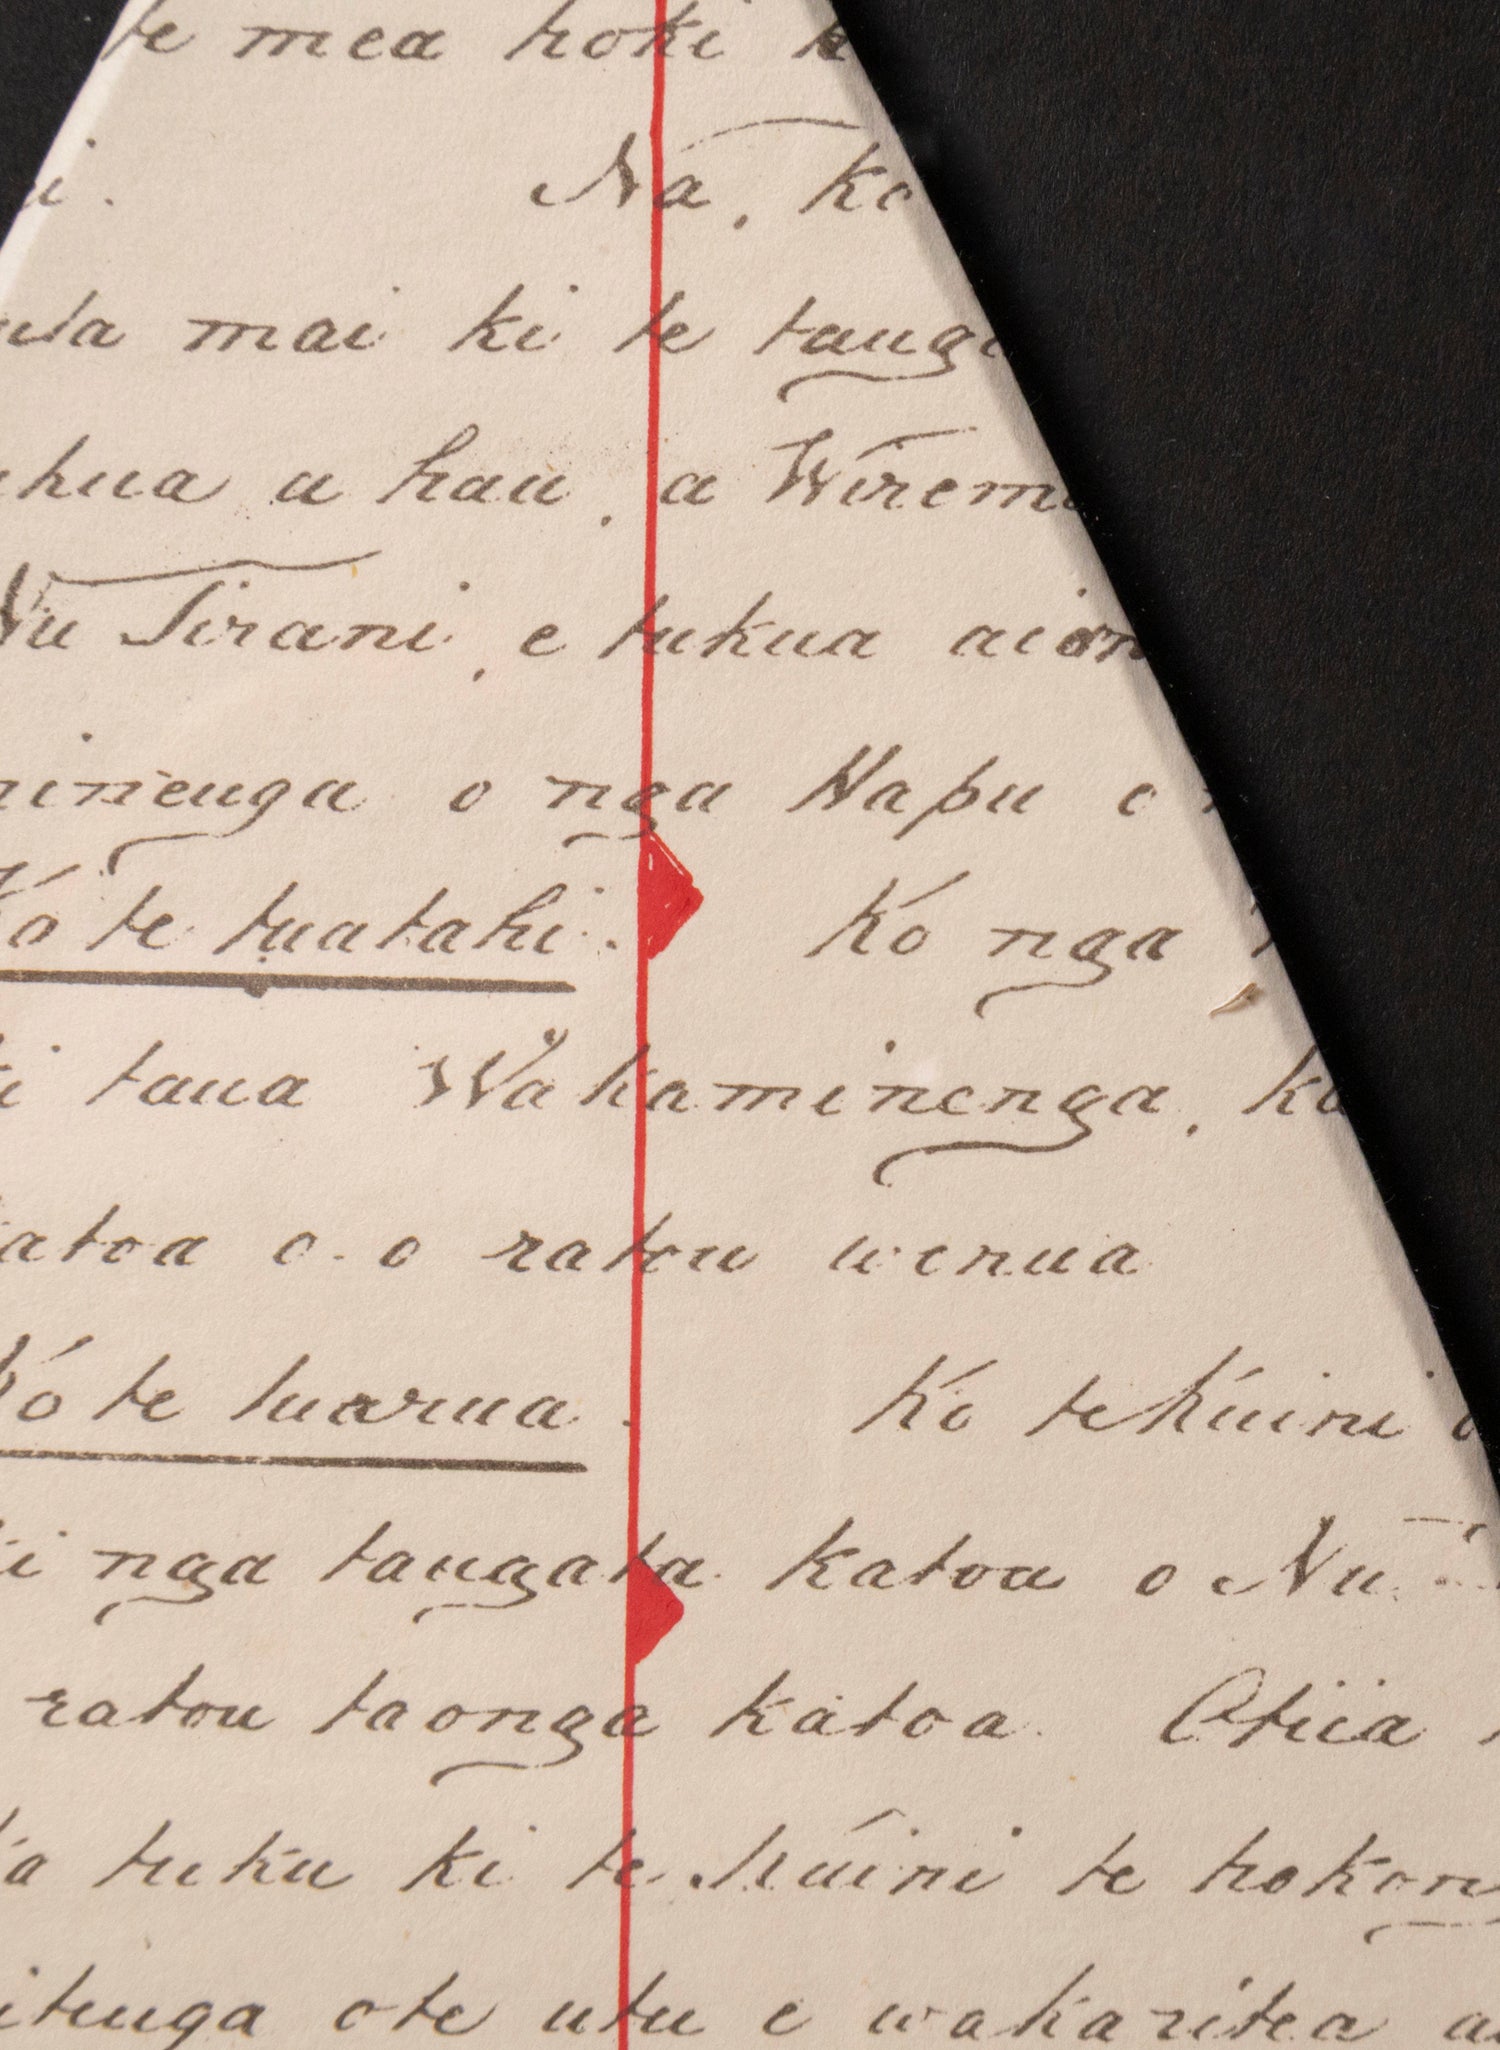 te mea hoki k
i. Na, ko
uta mai ki te tanga
ahua a hau, a Wiremu
Nu Tirani, e tukua aian
minenga o nga Hapu o
Ko te tuatahi. Ko nga
ki taua Wakaminenga, ka
katoa o o ratou wenua
Ko te tuarua. Ko te Kuini o
ki nga tangata katoa o Nu
ratou taonga katoa. Otiia
ka tuku ki te Kuini te hokong
itenga o te utu e wakaritea ai